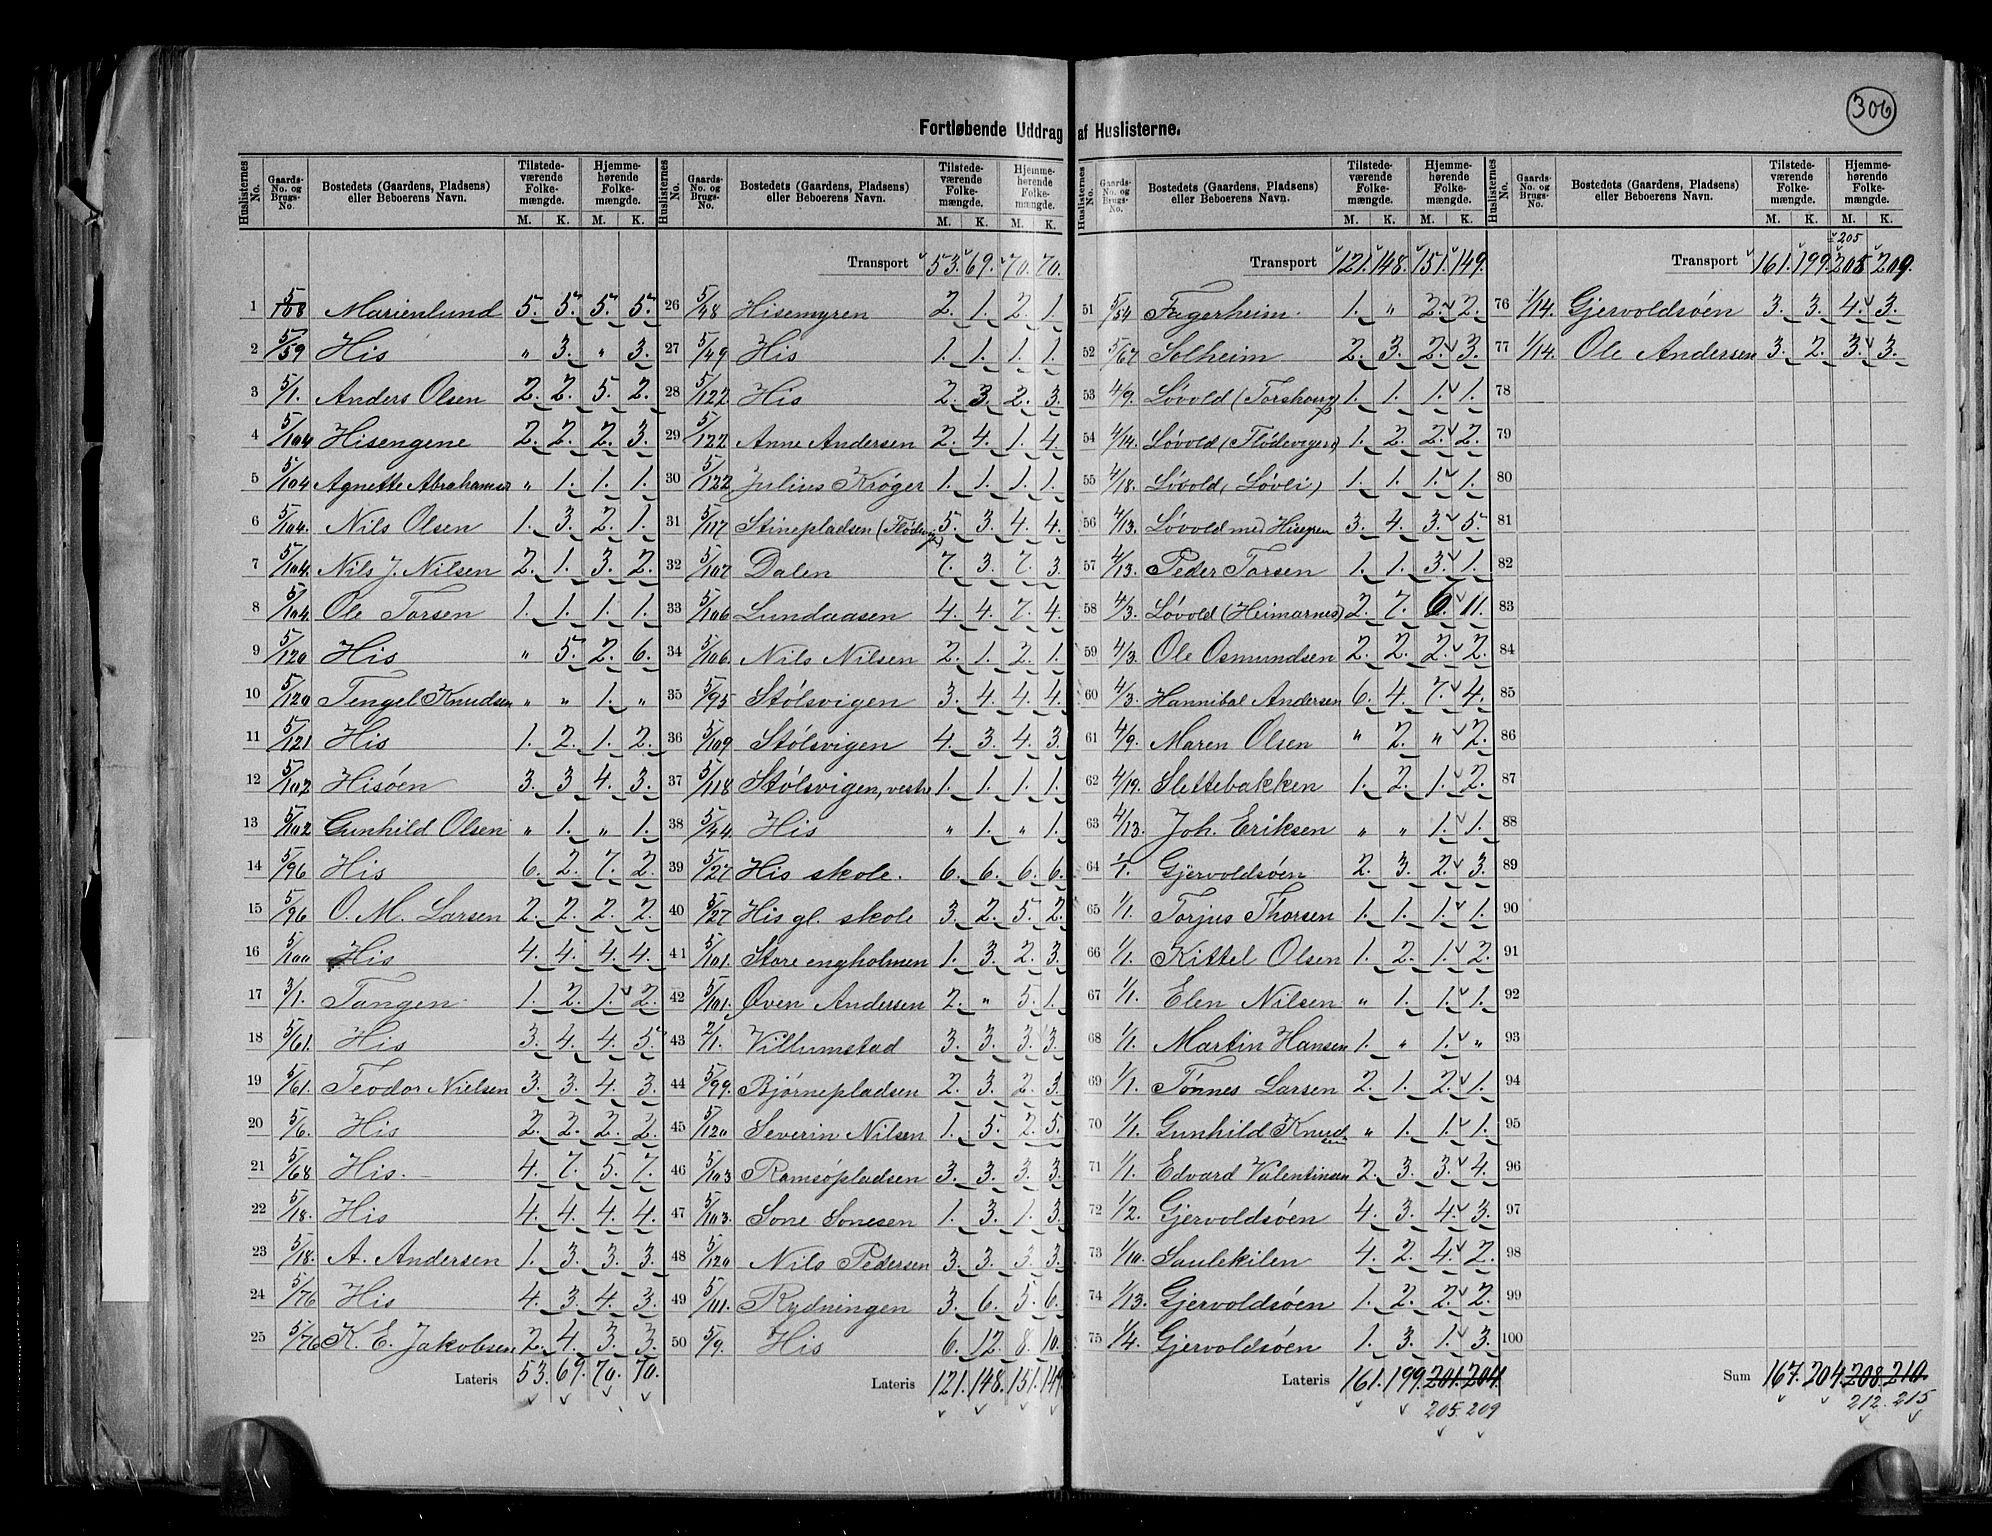 306
Fortløbende Uddrag af Huslisterne.
Huslisternes No. | Gaards-No. og Brugs-No. | Bostedets (Gaardens, Pladsens) eller Beboerens Navn. | Tilstedeværende Folkemængde. M. K. | Hjemmehørende Folkemængde. M. K.
1 5/108 Marienlund 5. 5. 5. 5.
2 5/59 His " 3. " 3.
3 5/1. Anders Olsen 2. 2. 5. 2.
4 5/104 Hisengene 2. 2. 2. 3.
5 5/104 Agnette Abrahamsen " 1. 1. 1.
6 5/104. Nils Olsen 1. 3. 2. 1.
7 5/104. Nils J. Nilsen 2. 1. 3. 2.
8 5/104. Ole Torsen 1. 1. 1. 1.
9 5/120 His " 5. 2. 6.
10 5/120 Tengel Knudsen " " 1. "
11 5/121 His 1. 2. 1. 2.
12 5/102 Hisöen 3. 3 4. 3.
13 5/102 Gunhild Olsen " 1. " 1.
14 5/96 His 6. 2. 7. 2.
15 5/96 O. M. Larsen 2. 2. 2. 2.
16 5/100 His 4. 4. 4. 4.
17 3/1. Tangen 1. 2. 1. 2.
18 5/61. His 3. 4. 4. 5.
19 5/61. Teodor Nielsen 3. 3. 4. 3.
20 5/6. His 2. 2. 2. 2.
21 5/68 His. 4. 7. 5. 7.
22 5/18. His 4. 4. 4. 4.
23 5/18. A. Andersen 1. 3. 3. 3.
24 5/76 His 4. 3. 4. 3.
25 5/76 K. E. Jakobsen 2. 4. 3. 3.
Lateris 53. 69. 70. 70.
Huslisternes No. | Gaards-No. og Brugs-No. | Bostedets (Gaardens, Pladsens) eller Beboerens Navn. | Tilstedeværende Folkemængde. M. K. | Hjemmehørende Folkemængde. M. K.
Transport 53. 69. 70. 70.
26 5/48 Hisemyren 2. 1. 2. 1.
27 5/49 His 1. 1. 1. 1.
28 5/122 His 2. 3. 2. 3.
29 5/122. Anne Andersen 2. 4. 1. 4.
30 5/122 Julius Kröger 1. 1. 1. 1.
31 5/117 Stinepladsen (Flödevigen) 5. 3. 4. 4.
32 5/107 Dalen 7. 3. 7. 3.
33 5/106 Lundaasen 4. 4. 7. 4.
34 5/106. Nils Nilsen 2. 1. 2. 1.
35 5/95 Stölsvigen 3. 4. 4. 4.
36 5/109 Stölsvigen 4. 3. 4. 3.
37 5/118 Stölsvigen, vestre 1. 1. 1. 1.
38 5/44. His " 1. " 1.
39 5/27 His skole. 6. 6. 6. 6.
40 5/27 His gl. skole 3. 2. 5. 2.
41 5/101. Store engholmen 1. 3. 2. 3.
42 5/101. Oven Andersen 2. " 5. 1.
43 2/1. Villumstad 3. 3. 3. 3.
44 5/99. Björnepladsen 2. 3. 2. 3.
45 5/120 Severin Nilsen 1. 5. 2. 5.
46 5/103 Ramsöpladsen 3. 3. 3. 3.
47 5/103. Sone Sonesen 1. 3. 1. 3.
48 5/120 Nils Pedersen 3. 3. 3. 3.
49 5/111. Rydningen 3. 6. 5. 6.
50 5/9. His 6. 12. 8. 10.
Lateris 121. 148. 151. 149.
Huslisternes No. | Gaards-No. og Brugs-No. | Bostedets (Gaardens, Pladsens) eller Beboerens Navn. | Tilstedeværende Folkemængde. M. K. | Hjemmehørende Folkemængde. M. K.
Transport 121. 148. 151. 149.
51 5/54 Fagerheim. 1. " 2. 2.
52 5/67 Solheim 2. 3. 2. 3.
53 4/9. Lövold (Torshoug) 1. 1. 1. 1.
54 4/14. Lövold (Flödevigen) 1. 2. 2. 2.
55 4/18. Lövold (Lövli) 1. 1. 1. 1.
56 4/13. Lövold med Hisegen 3. 4. 3. 5.
57 4/13. Peder Torsen 1. 1. 3. 1.
58 4/3. Lövold (Heimarnes) 2. 7. 6. 11.
59 4/3. Ole Osmundsen 2. 2. 2. 2.
60 4/3. Hannibal Andersen 6. 4. 7. 4.
61 4/9. Maren Olsen " 2. " 2.
62 4/19. Slettebakken 1. 2. 1. 2.
63 4/13. Joh. Eriksen " " 1. 1.
64 1/1. Gjervoldsöen 2. 3. 2. 3.
65 1/1. Torjus Thorsen 1. 1. 1. 1.
66 1/1. Kittel Olsen 1. 2. 1. 2.
67 1/1. Elen Nilsen " 1. 1. 1.
68 1/1. Martin Hansen 1. " 1. "
69 1/1. Tönnes Larsen 2. 1. 2. 1.
70 1/1. Gunhild Knudsen " 1. 1. 1.
71 1/1. Edvard Valentinsen 2. 3. 3. 4.
72 1/2. Gjervoldsöen 4. 3. 4. 3.
73 1/10. Saulekilen 4. 2. 4. 2.
74 1/13. Gjervoldsöen 1. 2. 2. 2.
75 1/4. Gjervoldsöen 1. 3. 1. 3.
Lateris 161. 199. 201. 204.
205. 209
Huslisternes No. | Gaards-No. og Brugs-No. | Bostedets (Gaardens, Pladsens) eller Beboerens Navn. | Tilstedeværende Folkemængde. M. K. | Hjemmehørende Folkemængde. M. K.
= 205
Transport 161. 199. 205 209.
76 1/14. Gjervoldsöen 3. 3. 4. 3.
77 1/14. Ole Andersen 3. 2. 3. 3.
78
79
80
81
82
83
84
85
86
87
88
89
90
91
92
93
94
95
96
97
98
99
100
Sum 167. 204. 208. 210.
212. 215